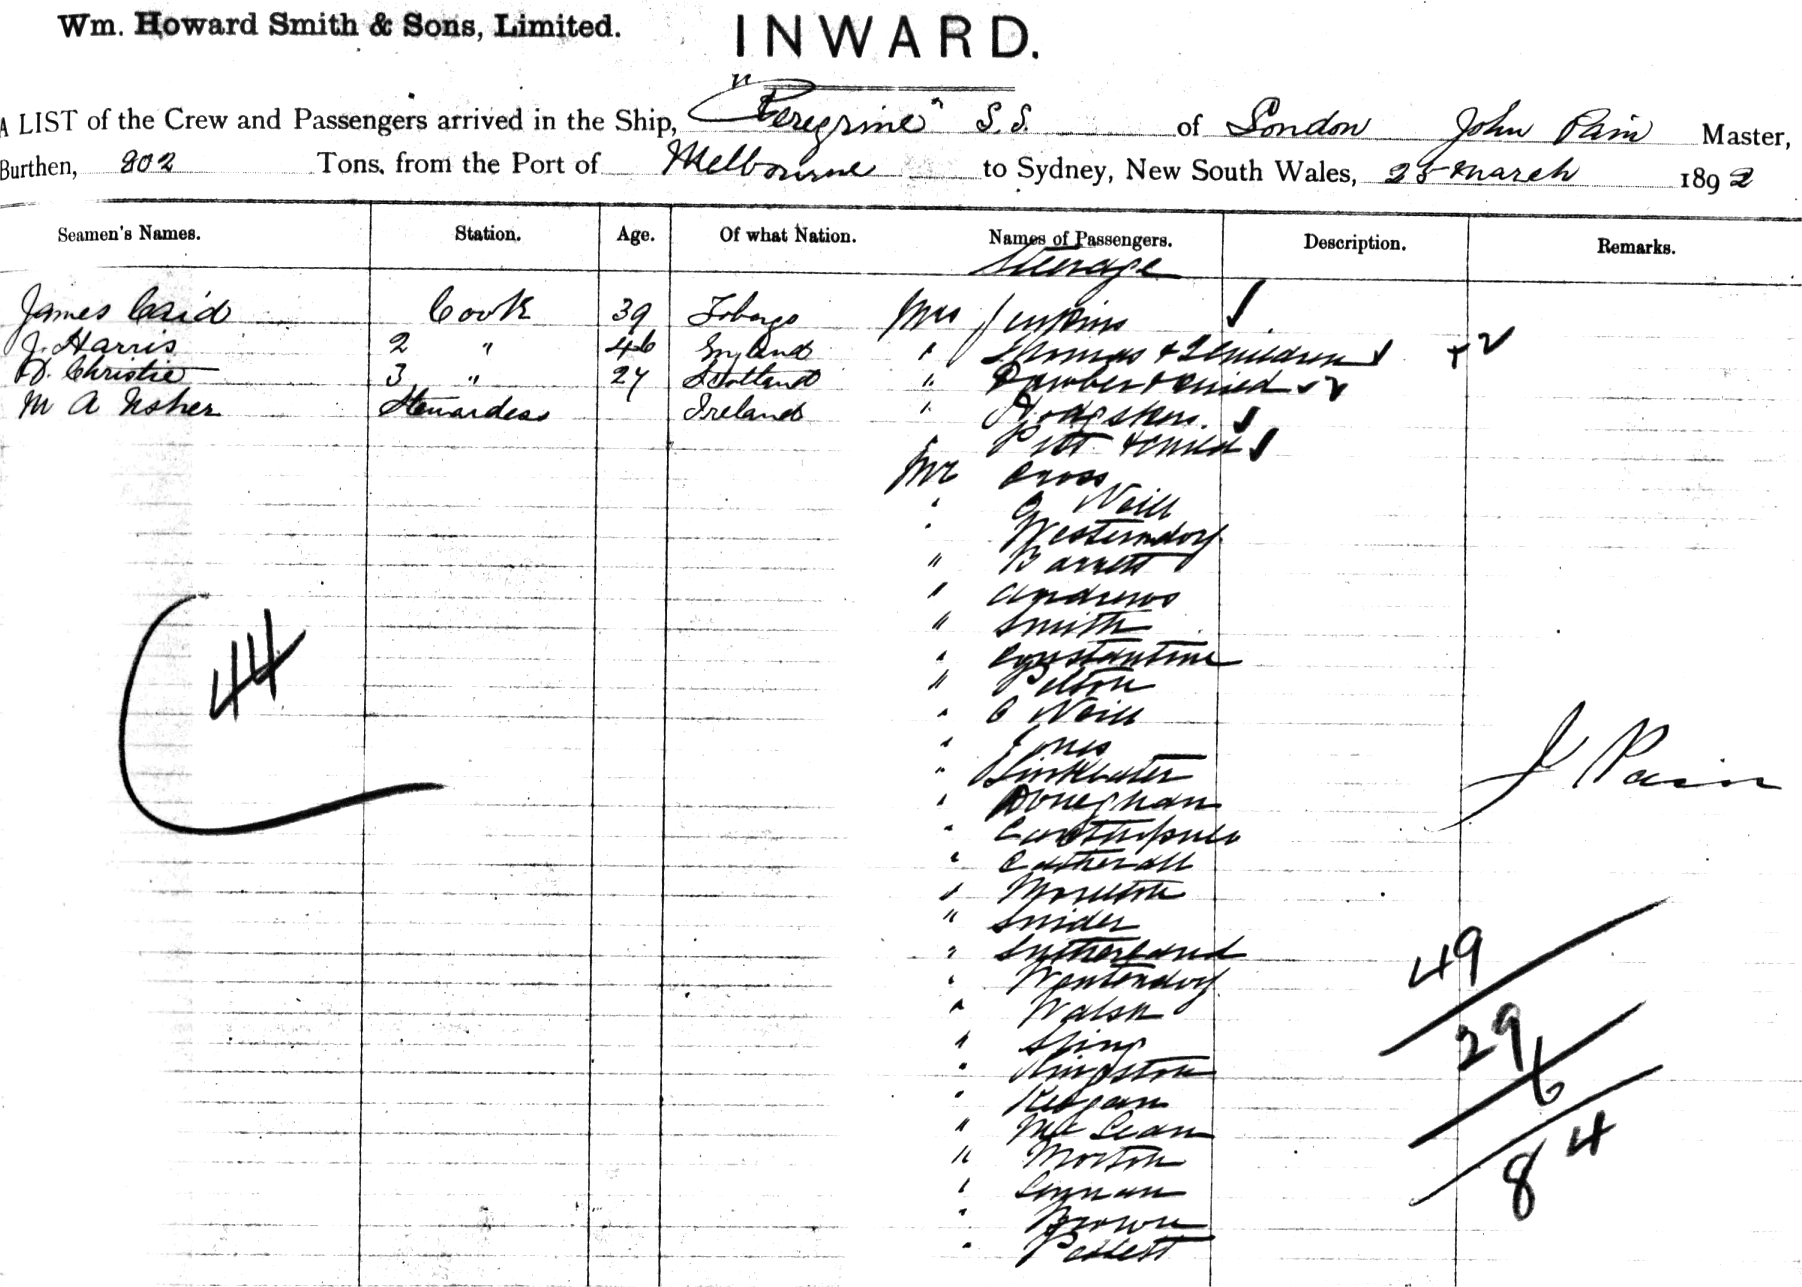 Wm. Howard Smith & Sons, Limited.
INWARD.
A LIST of the Crew and Passengers arrived in the Ship, "Peregrine" S.S. of London John Pain Master,
Burthen, 802 Tons, from the Port of Melbourne to Sydney, New South Wales, 25 March 1892
Seamen's Names. Station. Age. Of what Nation. Names of Passengers. Description. Remarks.
Steerage
James Caid Cook 39 Tobago Mrs Jenkins
J. Harris 2 " 46 England " Thomas & 2 Children + 2
D. Christie 3 " 27 Scotland " Dawber & Child
M A Usher Stewardess Ireland " Hodgskin
Pitt & Child
Mr Cross
" O Neill
" Westerndorf
" Barrett
" Andrews
" Smith
" Constantine
" Pelton
" O Neill
" Jones
" Linklater
" Doneghan
"
" Catherall
"
" Snider
" Sutherland
"
" Walsh
"
" Kingston
" Keogan
" McLean
" Morton
" Lennan
" Brown
"
44
J Pain
49
29
6
84